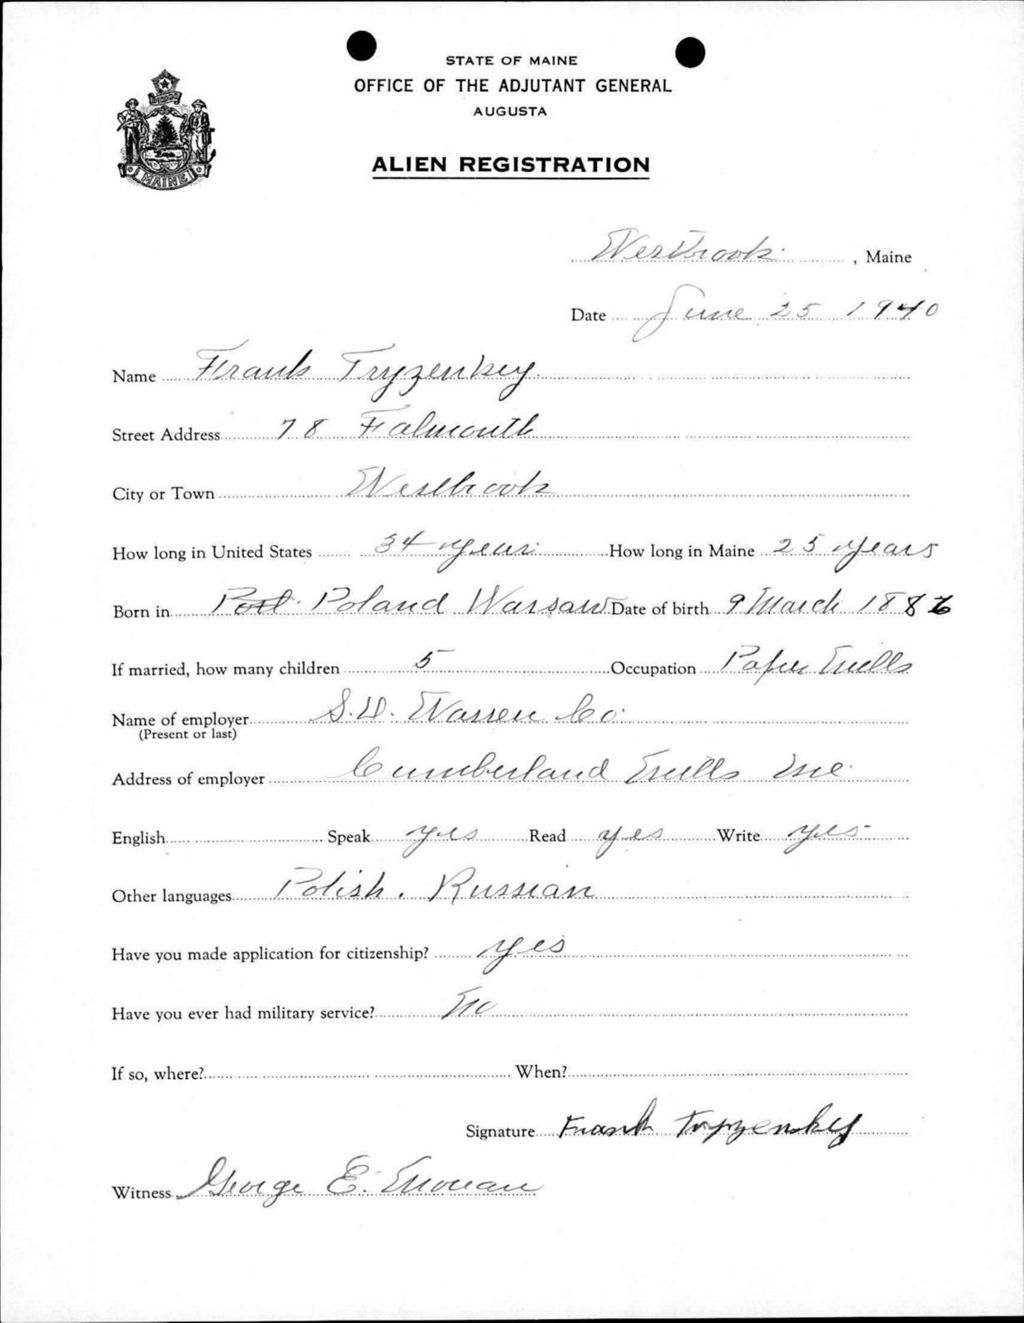 STATE OF MAINE
OFFICE OF THE ADJUTANT GENERAL
AUGUSTA
ALIEN REGISTRATION
MAINE
Westbrook, Maine
Date June 25 1940
Name Frank Tryzenkey
Street Address 78 Falmouth
City or Town Westbrook
How long in United States 34 years How long in Maine 25 years
Born in Poland Warsaw Date of birth 9 March 1886
If married, how many children 5 Occupation Paper Mills
Name of employer S. D. Warren Co.
(Present or last)
Address of employer Cumberland Mills Me.
English Speak yes Read yes Write yes
Other languages Polish. Russian
Have you made application for citizenship? yes
Have you ever had military service? No
If so, where? When?
Signature Frank
Witness George E.